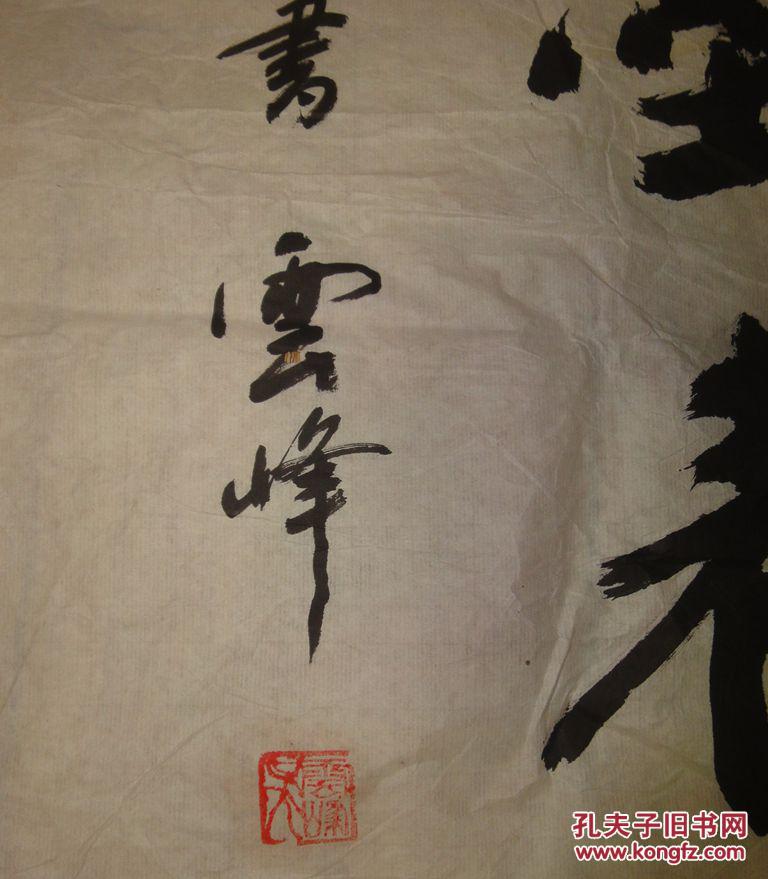 書
雲峰
吴雲峰
孔夫子旧书网
www.kongfz.com